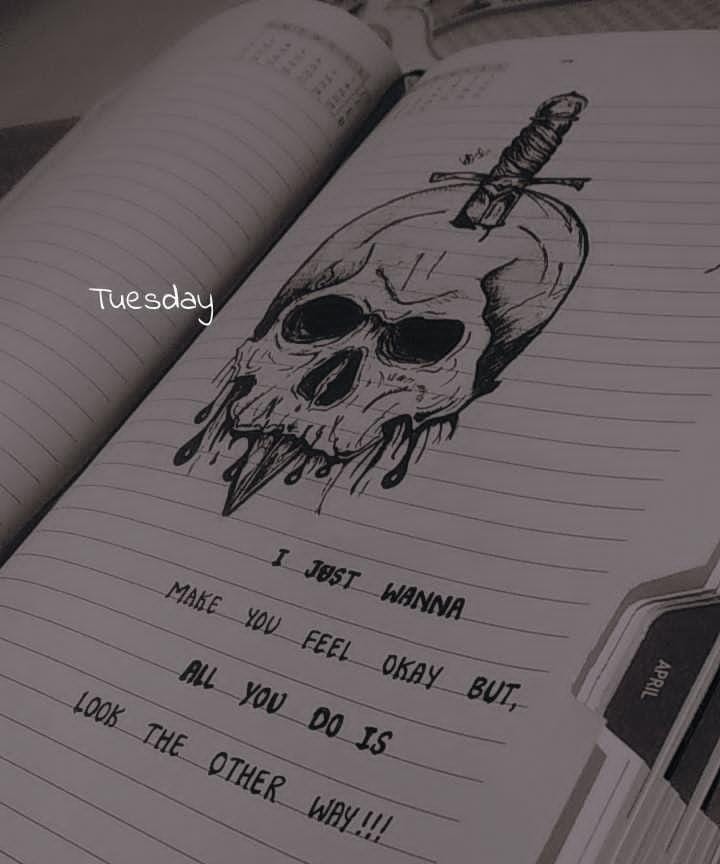 Tuesday
I JUST WANNA
MAKE YOU FEEL OKAY BUT,
ALL YOU DO IS
LOOK THE OTHER WAY!!!
APRIL